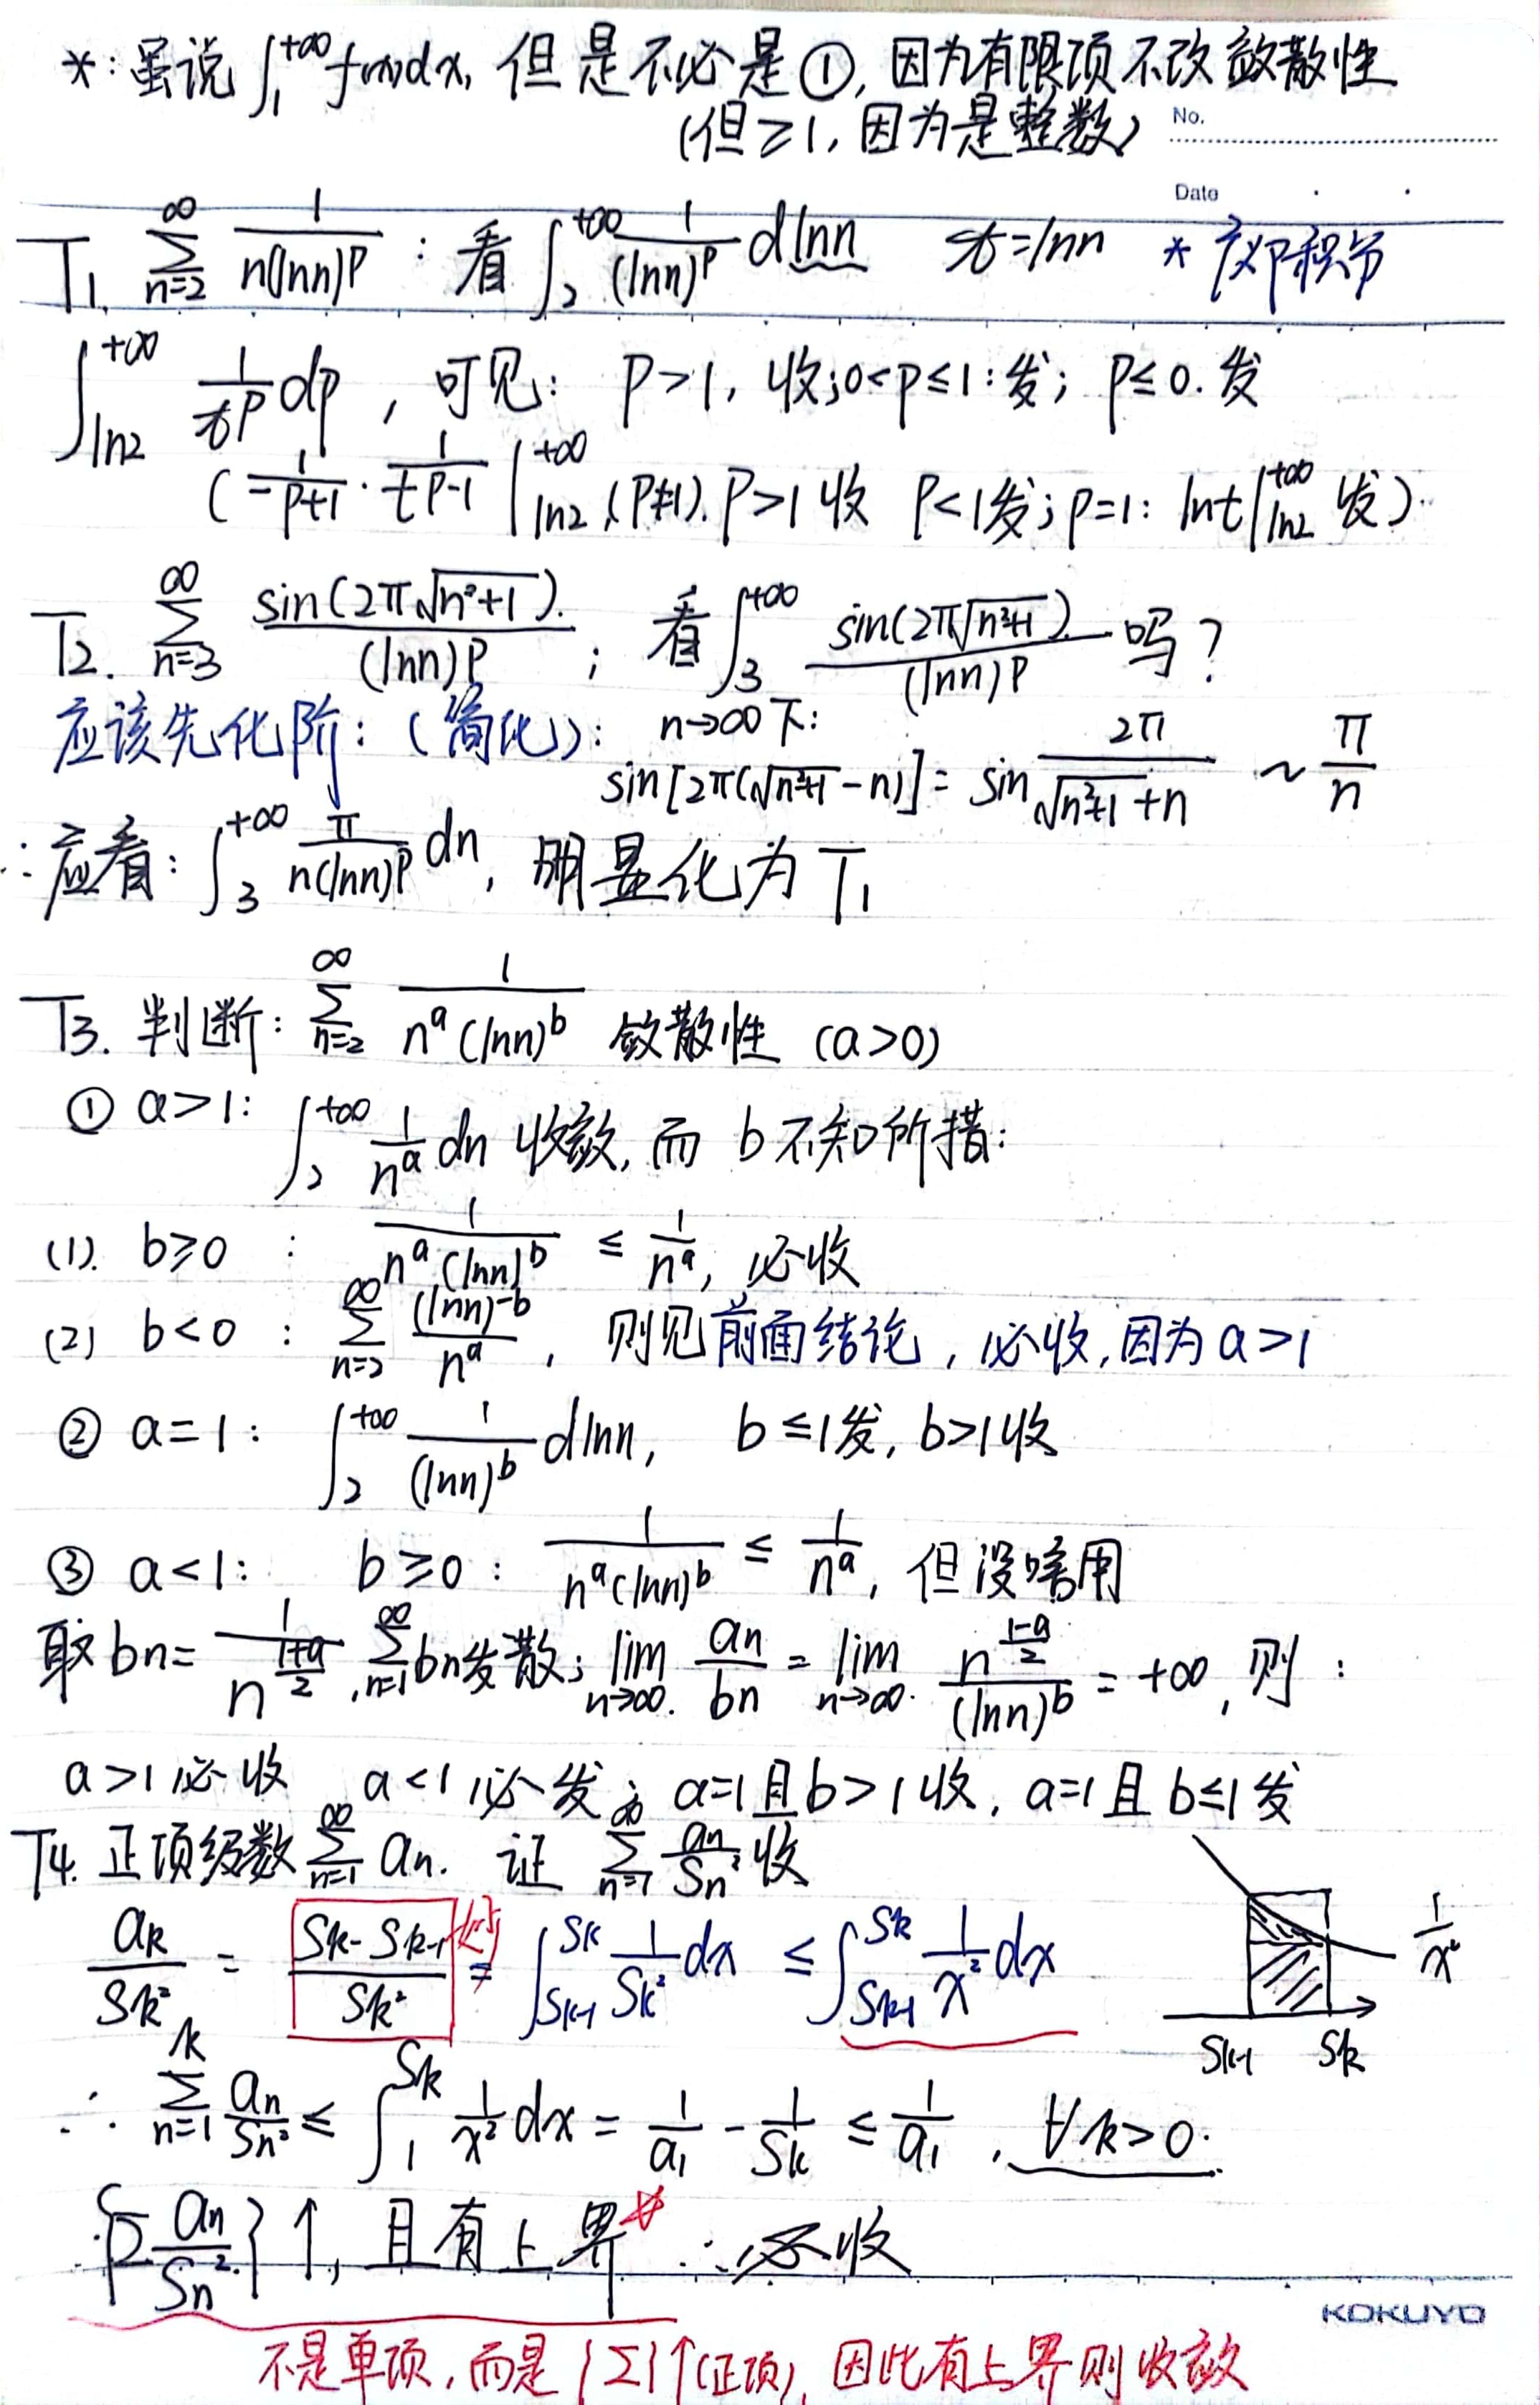 *: 虽说 ∫₁^{+∞} f(x)dx, 但是不必是①, 因为有限项不改敛散性
(但≥1, 因为是整数)
No.
Date
T1. ∑_{n=2}^∞ 1/(n(lnn)^p) : 看 ∫₂^{+∞} 1/(lnn)^p dlnn  t=lnn  * 反积分
∫_{ln2}^{+∞} 1/t^p dp , 可见: p>1, 收; 0<p≤1: 发; p≤0. 发
( = 1/(-p+1) · 1/t^{p-1} |_{ln2}^{+∞}, (p≠1). p>1 收 p<1发; p=1: lnt|_{ln2}^{+∞} 发).
T2. ∑_{n=3}^∞ sin(2π√(n²+1))/(lnn)^p ; 看 ∫₃^{+∞} sin(2π√(n²+1))/(lnn)^p 吗?
应该先化阶: (简化): n→∞下:
sin[2π(√(n²+1)-n)] = sin 2π/(√(n²+1)+n) ~ π/n
∴应看: ∫₃^{+∞} π/(n(lnn)^p) dn, 明显化为 T1
T3. 判断: ∑_{n=2}^∞ 1/(n^a (lnn)^b) 敛散性 (a>0)
① a>1: ∫₂^{+∞} 1/n^a dn 收敛, 而 b 不知所措:
(1). b≥0 : 1/(n^a (lnn)^b) ≤ 1/n^a, 必收
(2) b<0 : ∑_{n=2}^∞ (lnn)^{-b}/n^a , 则见前面结论, 必收, 因为 a>1
② a=1: ∫₂^{+∞} 1/(lnn)^b dlnn, b≤1发, b>1收
③ a<1: b≥0 : 1/(n^a(lnn)^b) ≤ 1/n^a, 但没啥用
取 bn= 1/n^{(1+a)/2}, ∑_{n=1}^∞ bn发散; lim_{n→∞} an/bn = lim_{n→∞} n^{(1-a)/2}/(lnn)^b = +∞, 则:
a>1 必收 a<1 必发; a=1且b>1收, a=1且b≤1发
T4. 正项级数 ∑_{n=1}^∞ an. 证 ∑_{n=1}^∞ an/Sn² 收
ak/Sk² = (Sk-Sk-1)/Sk² = ∫_{Sk-1}^{Sk} 1/Sk² dx ≤ ∫_{Sk-1}^{Sk} 1/x² dx
1/x²
Sk-1 Sk
∴ ∑_{n=1}^k an/Sn² ≤ ∫₁^{Sk} 1/x² dx = 1/a₁ - 1/Sk ≤ 1/a₁ , ∀k>0.
{∑ an/Sn²}↑, 且有上界* ∴必收
KOKUYO
不是单项, 而是{∑}↑(正项), 因此有上界则收敛